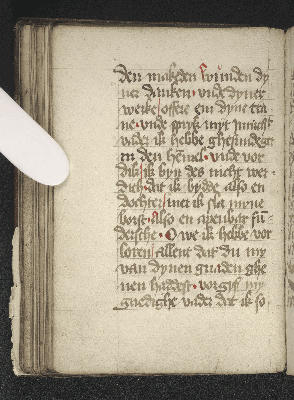 den naketen wunden dy
ner danken · unde dyner
werke offere em dyne tra
ne · unde sprik myt innich
vader ik hebbe ghesundeget
in den hemel · unde vor
dik ik byn des nicht wer
dich dat ik bydde also en
dochter met ik sla myne
borst · also en apenbar sun
dersche · O we ik hebbe vor
loren allent dat du my
van dynen gnaden ghe
uen haddest · vorgyf my
gnedighe vader dat ik so